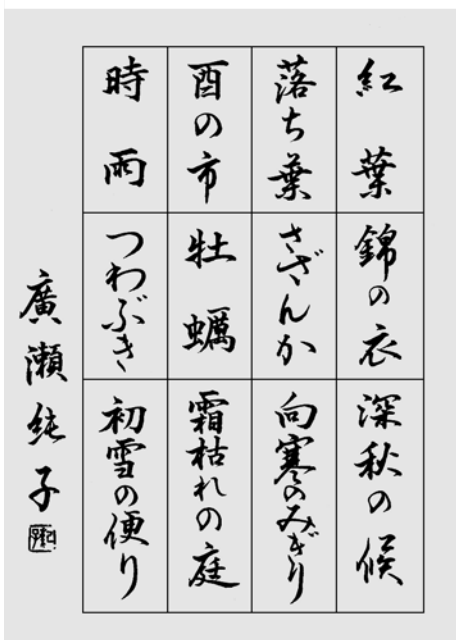 紅葉
錦の衣
深秋の候
落ち葉
さざんか
向寒のみぎり
酉の市
牡蠣
霜枯れの庭
時雨
つわぶき
初雪の便り
廣瀬純子